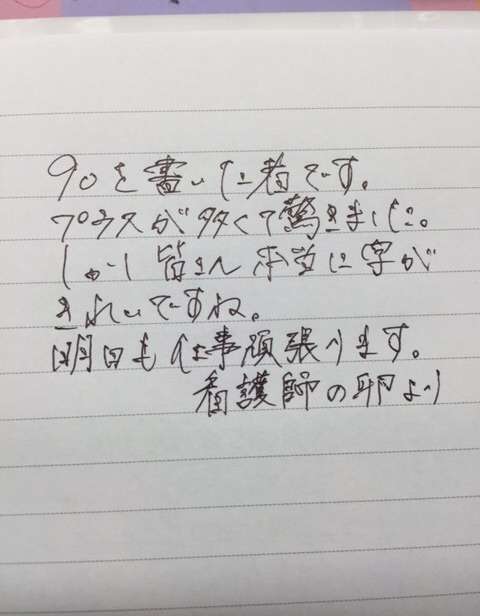 90を書いた者です。
プラスが多くて驚きました。
しかし皆さん本当に字が
きれいですね。
明日も仕事頑張ります。
看護師の卵より